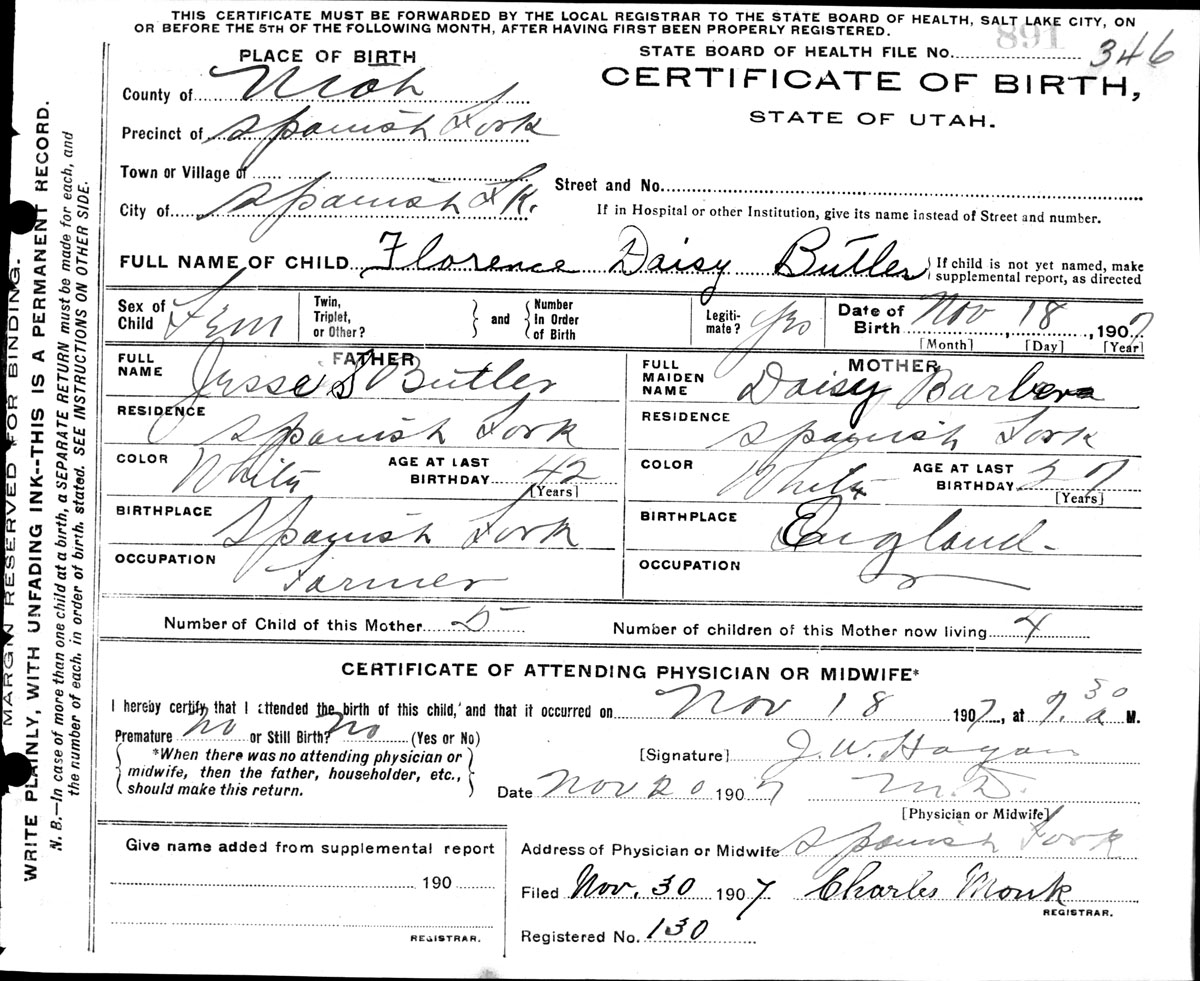 THIS CERTIFICATE MUST BE FORWARDED BY THE LOCAL REGISTRAR TO THE STATE BOARD OF HEALTH, SALT LAKE CITY, ON
OR BEFORE THE 5TH OF THE FOLLOWING MONTH, AFTER HAVING FIRST BEEN PROPERLY REGISTERED.
891
PLACE OF BIRTH
STATE BOARD OF HEALTH FILE No. 346
CERTIFICATE OF BIRTH,
STATE OF UTAH.
County of Utah
Precinct of Spanish Fork
Town or Village of
Street and No.
City of Spanish Fk.
If in Hospital or other Institution, give its name instead of Street and number.
FULL NAME OF CHILD Florence Daisy Butler
If child is not yet named, make
supplemental report, as directed
Sex of Child Fem
Twin, Triplet, or Other?
and
Number In Order of Birth
Legiti-mate? Yes
Date of Birth Nov 18, 1907
[Month] [Day] [Year]
FATHER
FULL NAME Jesse S Butler
RESIDENCE Spanish Fork
COLOR White
AGE AT LAST BIRTHDAY 42
[Years]
BIRTHPLACE Spanish Fork
OCCUPATION Farmer
MOTHER
FULL MAIDEN NAME Daisy Barber
RESIDENCE Spanish Fork
COLOR White
AGE AT LAST BIRTHDAY 27
[Years]
BIRTHPLACE England
OCCUPATION
Number of Child of this Mother 5
Number of children of this Mother now living 4
CERTIFICATE OF ATTENDING PHYSICIAN OR MIDWIFE*
I hereby certify that I attended the birth of this child, and that it occurred on Nov 18 1907, at 7.30 a M.
Premature no or Still Birth? no (Yes or No)
*When there was no attending physician or
midwife, then the father, householder, etc.,
should make this return.
[Signature] J. W. Hagan
Date Nov 20 1907 M.D.
[Physician or Midwife]
Address of Physician or Midwife Spanish Fork
Give name added from supplemental report
190
REGISTRAR.
Filed Nov. 30 1907 Charles Monk
REGISTRAR.
Registered No. 130
MARGIN RESERVED FOR BINDING.
WRITE PLAINLY, WITH UNFADING INK--THIS IS A PERMANENT RECORD.
N. B.—In case of more than one child at a birth, a SEPARATE RETURN must be made for each, and
the number of each, in order of birth, stated. SEE INSTRUCTIONS ON OTHER SIDE.